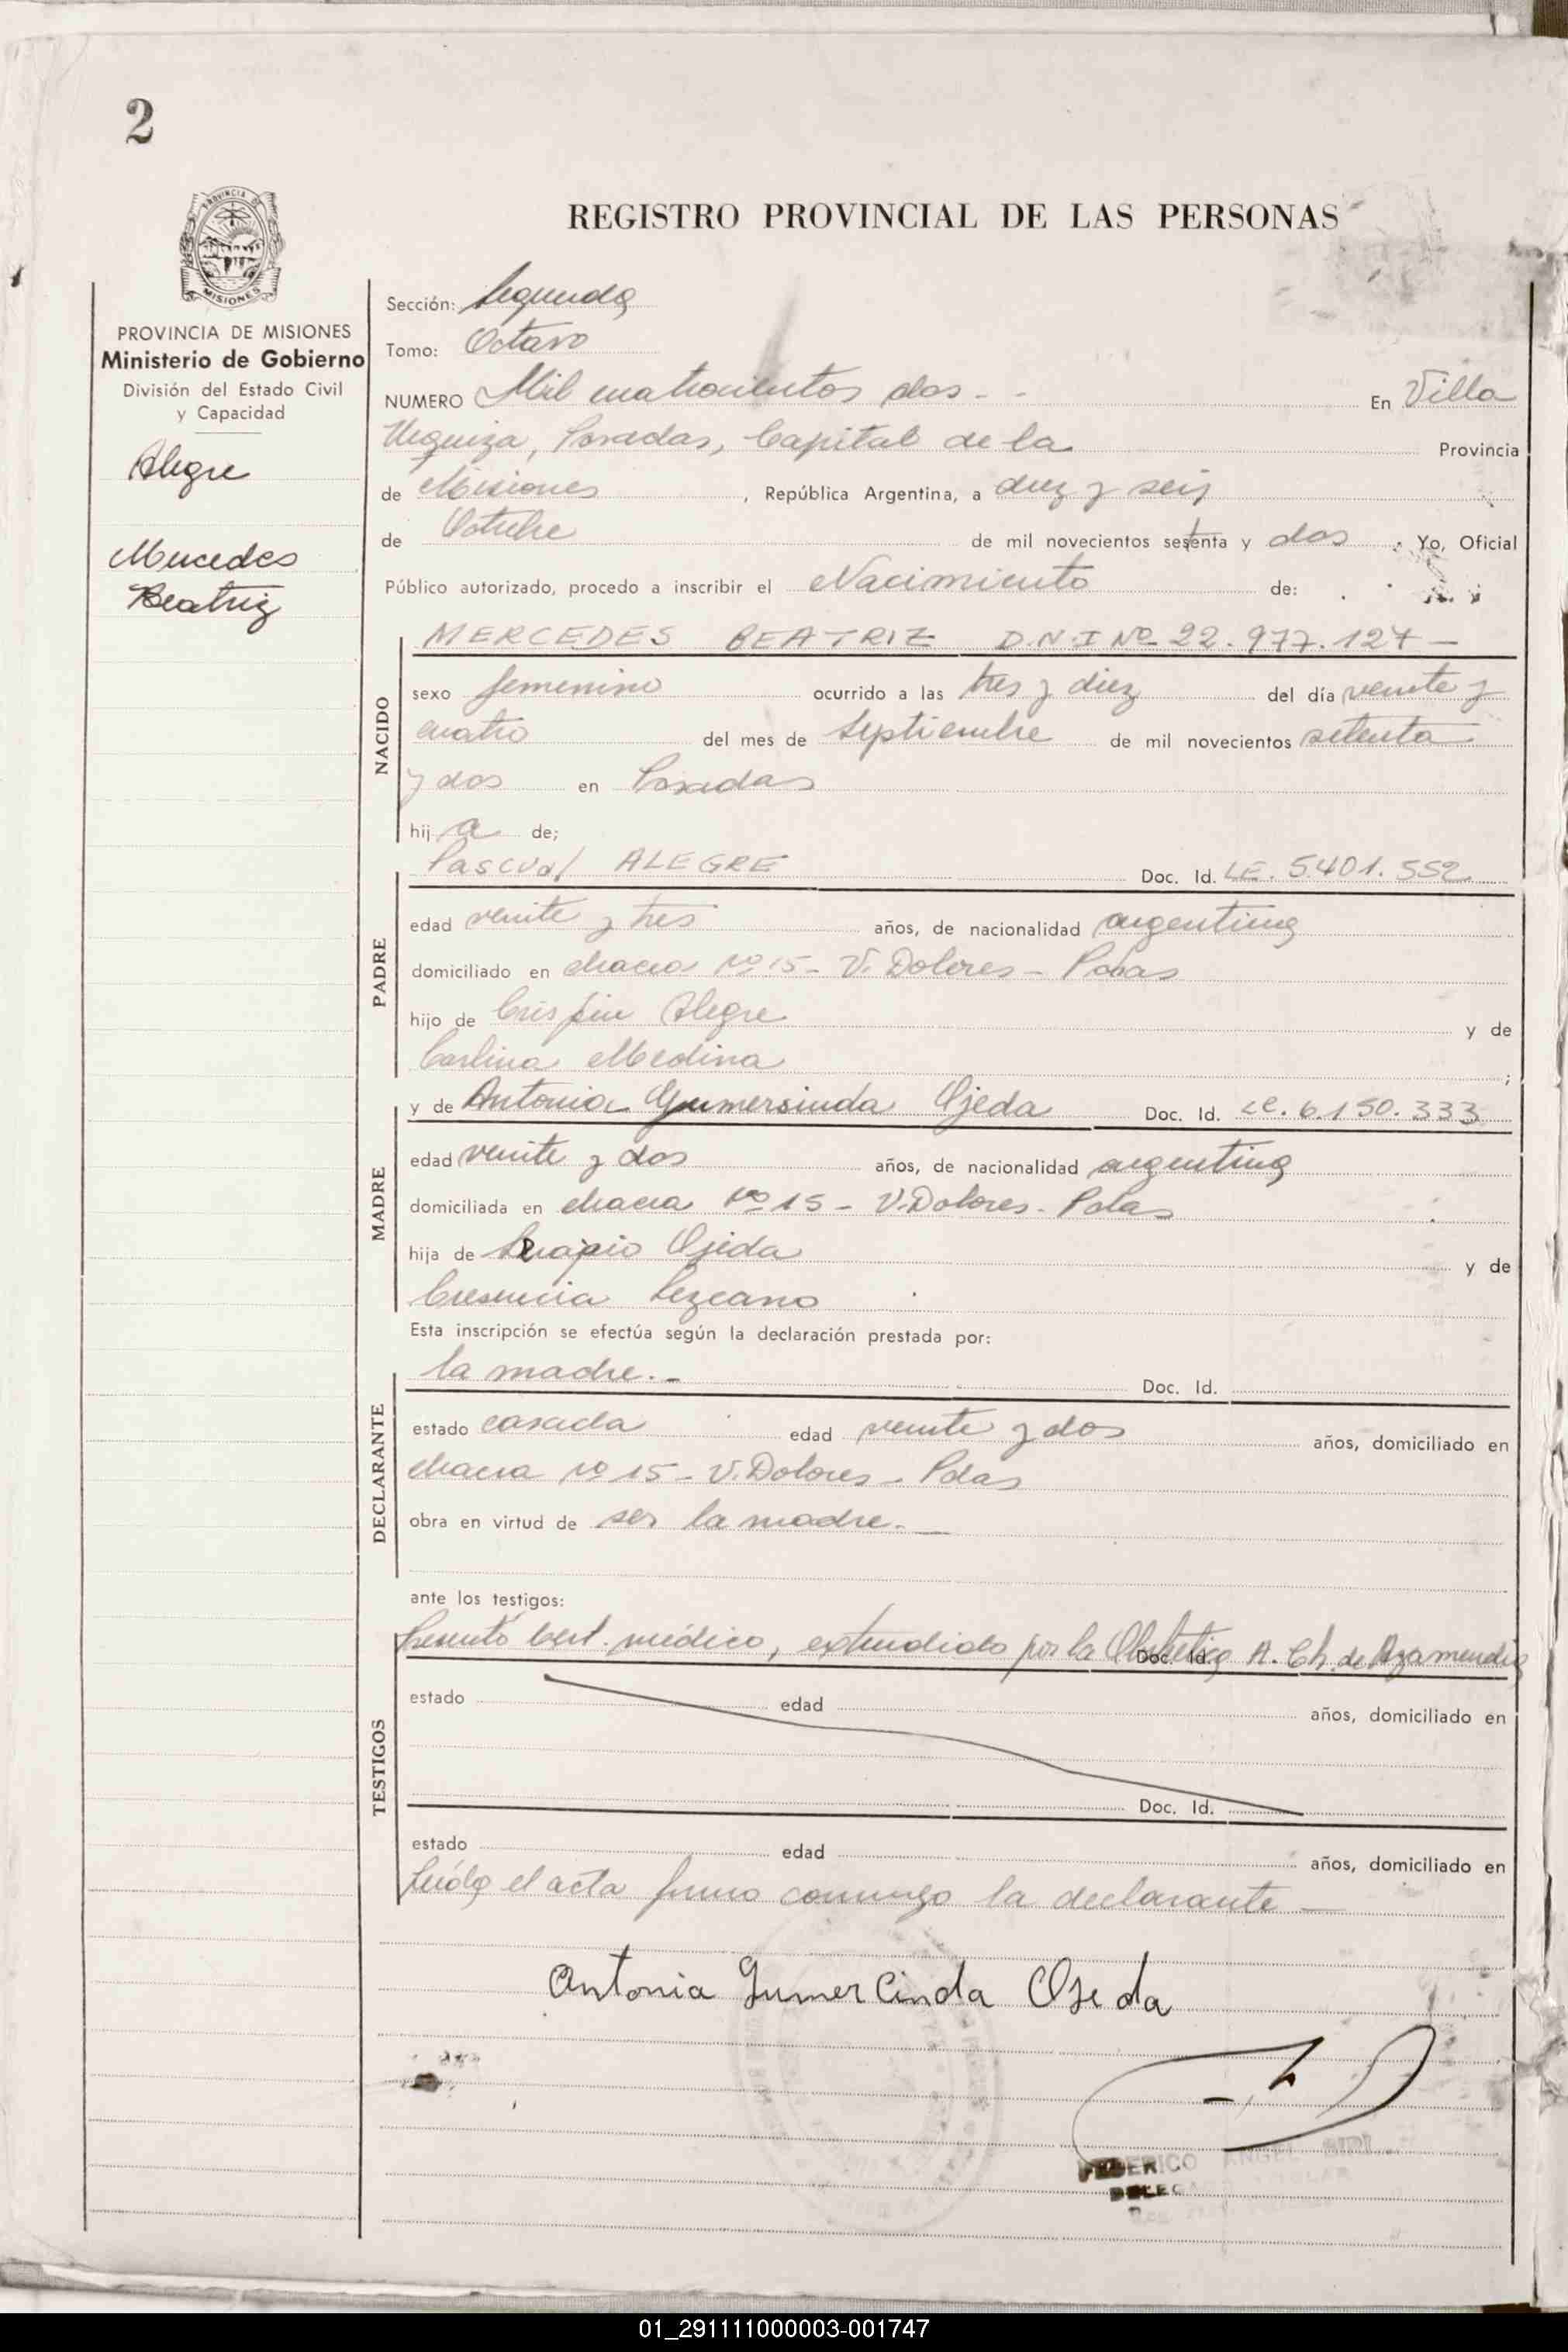 2
PROVINCIA DE
MISIONES
REGISTRO PROVINCIAL DE LAS PERSONAS
PROVINCIA DE MISIONES
Ministerio de Gobierno
División del Estado Civil
y Capacidad
Alegre
Mercedes
Beatriz
Sección: Segunda
Tomo: Octavo
NUMERO Mil cuatrocientos dos - - En Villa
Urquiza, Posadas, Capital de la Provincia
de Misiones, República Argentina, a diez y seis
de Octubre de mil novecientos setenta y dos. Yo, Oficial
Público autorizado, procedo a inscribir el Nacimiento de:
NACIDO
MERCEDES BEATRIZ D.N.I Nº 22.977.127 -
sexo femenino ocurrido a las tres y diez del día veinte y
cuatro del mes de Septiembre de mil novecientos setenta
y dos en Posadas
hij a de;
PADRE
Pascual ALEGRE Doc. Id. LE. 5.401.552
edad veinte y tres años, de nacionalidad argentina
domiciliado en chacra Nº 15 - V. Dolores - Pdas
hijo de Crispin Alegre y de
Carlina Medina ;
MADRE
y de Antonia Gumersinda Ojeda Doc. Id. LC. 6.150.333
edad veinte y dos años, de nacionalidad argentina
domiciliada en chacra Nº 15 - V. Dolores - Pdas
hija de Serapio Ojeda y de
Cresencia Lezcano
Esta inscripción se efectúa según la declaración prestada por:
DECLARANTE
la madre. - Doc. Id.
estado casada edad veinte y dos años, domiciliado en
chacra Nº 15 - V. Dolores - Pdas
obra en virtud de ser la madre. —
ante los testigos:
TESTIGOS
Presentó Cert. médico, extendido por la Obstetica A. Ch. de Azamendia
Doc. Id.
estado edad años, domiciliado en
Doc. Id.
estado edad años, domiciliado en
Leída el acta firma conmigo la declarante —
Antonia Gumercinda Ojeda
FEDERICO ANGEL
01_291111000003-001747